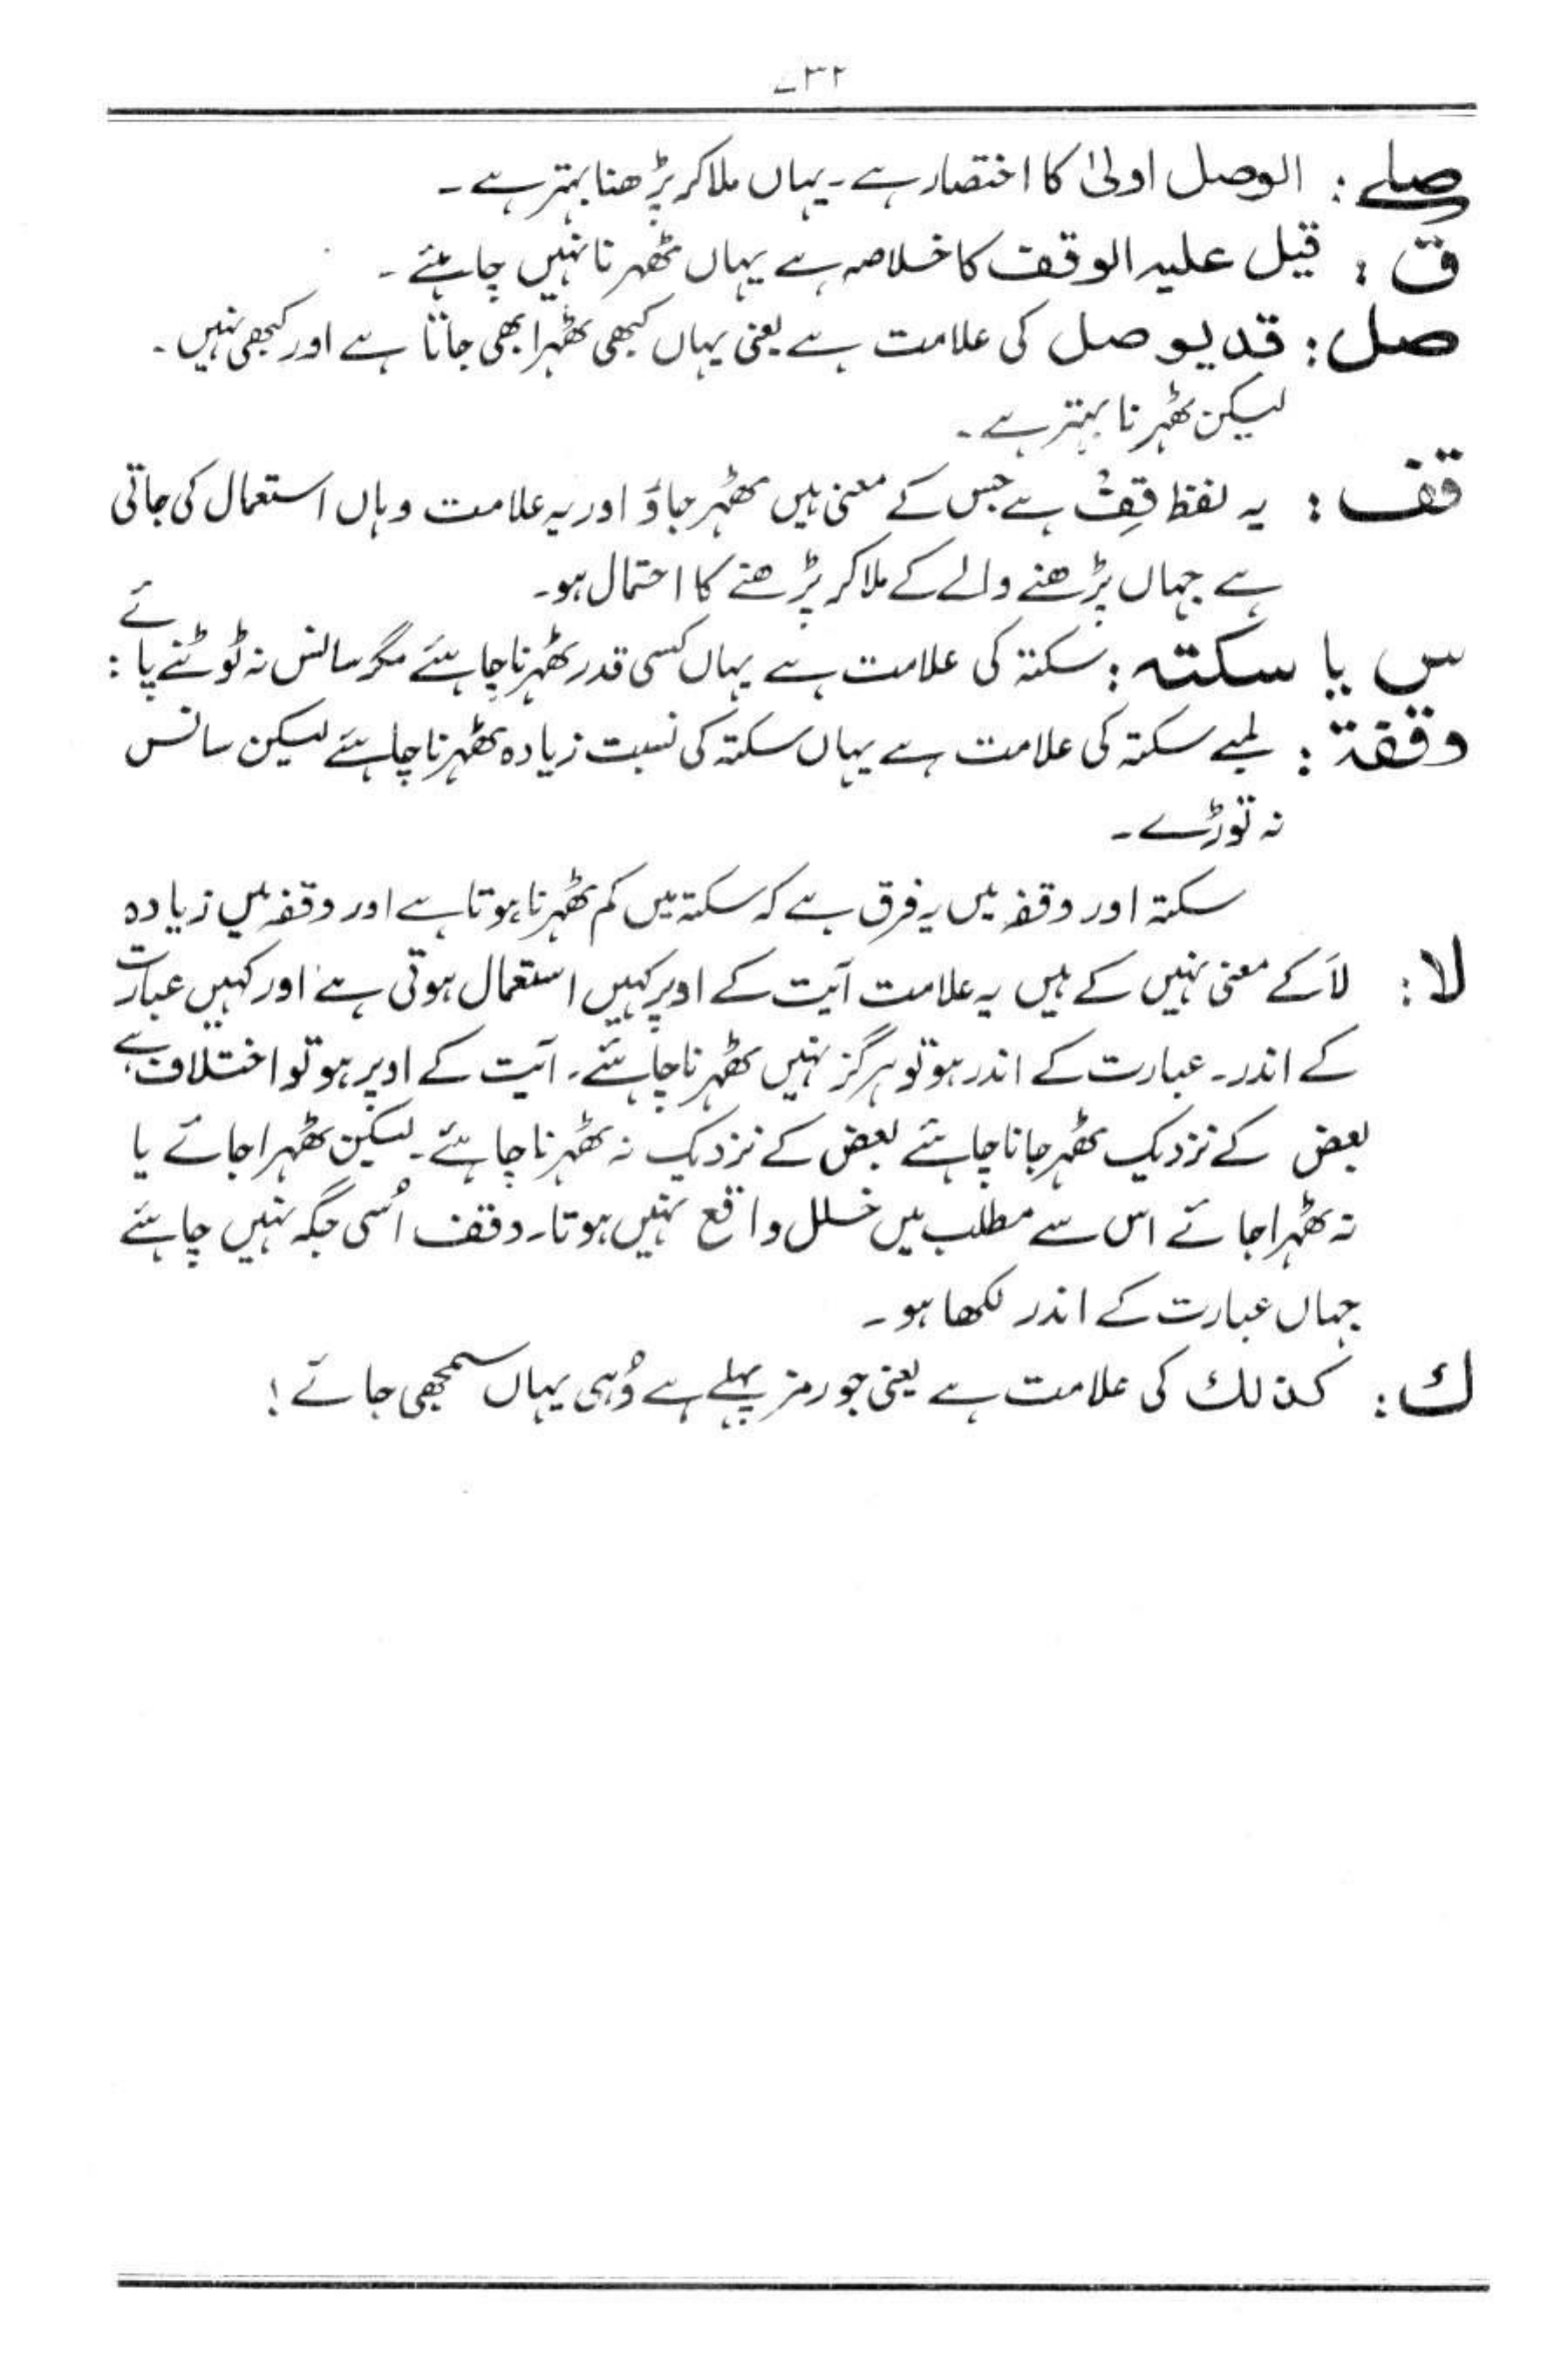 ۷۳۲
صلے : الوصل اولیٰ کا اختصار ہے ۔ یہاں ملا کر پڑھنا بہتر ہے ۔
ق : قیل علیہ الوقف کا خلاصہ ہے یہاں ٹھہرنا نہیں چاہئے ۔
صل : قد یوصل کی علامت ہے یعنی یہاں کبھی ٹھہرا بھی جاتا ہے اور کبھی نہیں ۔
لیکن ٹھہرنا بہتر ہے ۔
قف : یہ لفظ قِفْ ہے جس کے معنی ہیں ٹھہر جاؤ اور یہ علامت وہاں استعمال کی جاتی
ہے جہاں پڑھنے والے کے ملا کر پڑھنے کا احتمال ہو۔
س یا سکتہ : سکتہ کی علامت ہے یہاں کسی قدر ٹھہرنا چاہئے مگر سانس نہ ٹوٹنے پائے :
وقفۃ : لمبے سکتہ کی علامت ہے یہاں سکتہ کی نسبت زیادہ ٹھہرنا چاہئے لیکن سانس
نہ توڑے ۔
سکتہ اور وقفہ میں یہ فرق ہے کہ سکتہ میں کم ٹھہرنا ہوتا ہے اور وقفہ میں زیادہ
لا : لَا کے معنی نہیں کے ہیں یہ علامت آیت کے اوپر کہیں استعمال ہوتی ہے اور کہیں عبارت
کے اندر ۔ عبارت کے اندر ہو تو ہرگز نہیں ٹھہرنا چاہئے ۔ آیت کے اوپر ہو تو اختلاف ہے
بعض کے نزدیک ٹھہر جانا چاہئے بعض کے نزدیک نہ ٹھہرنا چاہئے ۔ لیکن ٹھہرا جائے یا
نہ ٹھہرا جائے اس سے مطلب میں خلل واقع نہیں ہوتا ۔ وقف اُسی جگہ نہیں چاہئے
جہاں عبارت کے اندر لکھا ہو ۔
ك : کذلك کی علامت ہے یعنی جو رمز پہلے ہے وُہی یہاں سمجھی جائے !